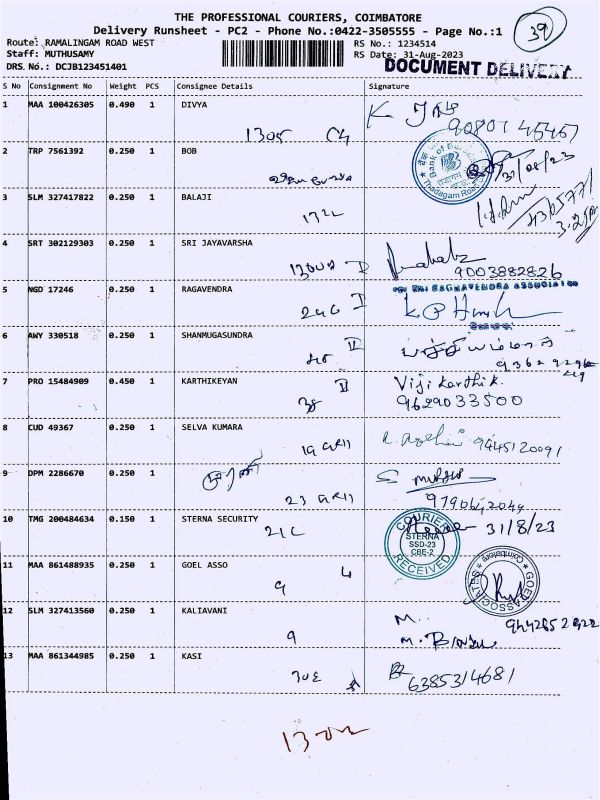 THE PROFESSIONAL COURIERS, COIMBATORE
Delivery Runsheet - PC2 - Phone No.:0422-3505555 - Page No.:1
39
Route: RAMALINGAM ROAD WEST
RS No.: 1234514
Staff: MUTHUSAMY
RS Date: 31-Aug-2023
DRS No.: DCJB123451401
DOCUMENT DELIVERY
S No Consignment No Weight PCS Consignee Details Signature
1 MAA 100426305 0.490 1 DIVYA
1305
2 TRP 7561392 0.250 1 BOB
Bank of Baroda
Thadagam Road
31/08/23
3 SLM 327417822 0.250 1 BALAJI
1322
4 SRT 302129303 0.250 1 SRI JAYAVARSHA
9003882826
5 NGD 17246 0.250 1 RAGAVENDRA
SRI RAGHAVENDRA ASSOCIATES
246 I
6 AWY 330518 0.250 1 SHANMUGASUNDRA
II
7 PRO 15484909 0.450 1 KARTHIKEYAN
II
Viji karthik.
9629033500
8 CUD 49367 0.250 1 SELVA KUMARA
9445120091
9 DPM 2286670 0.250 1
23
10 TMG 200484634 0.150 1 STERNA SECURITY
21C
COURIER
STERNA
SSD-23
CBE-2
RECEIVED
31/8/23
11 MAA 861488935 0.250 1 GOEL ASSO
9 4
GOEL ASSOCIATES
Coimbatore
12 SLM 327413560 0.250 1 KALIAVANI
9
M.
13 MAA 861344985 0.250 1 KASI
30E
6385314681
1302